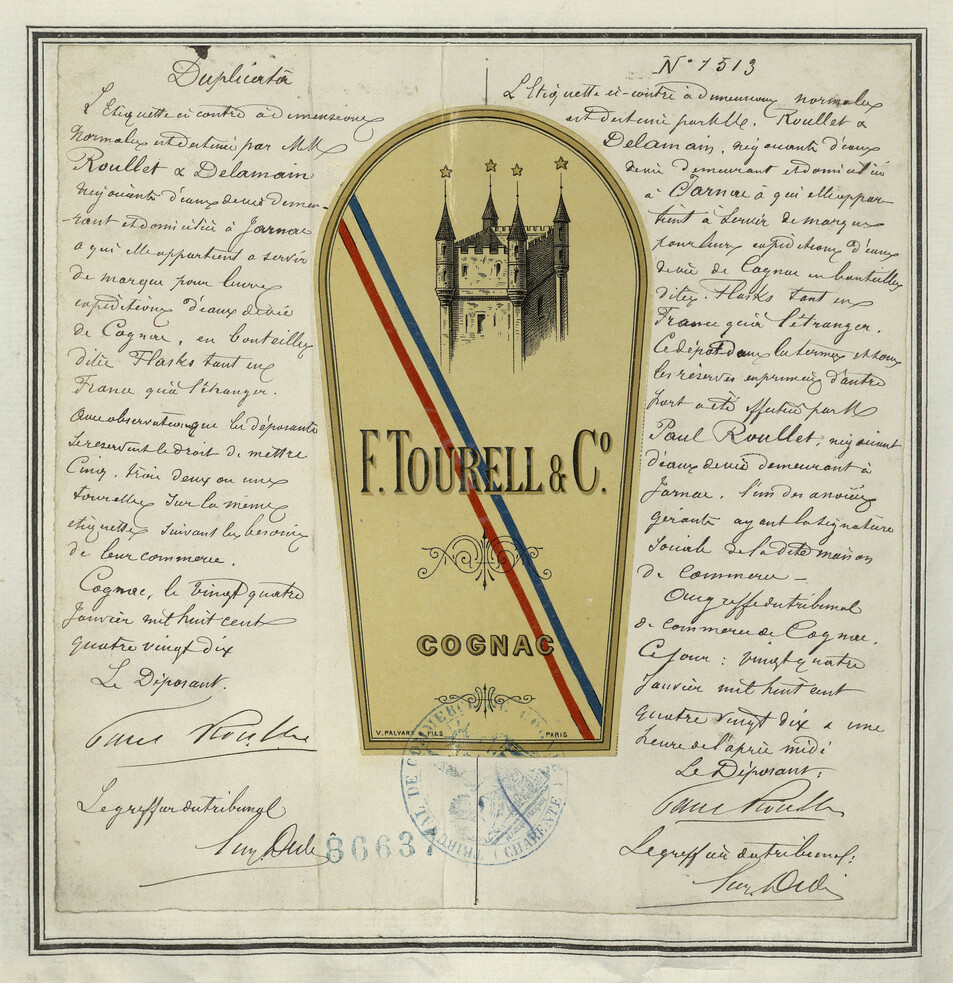 Duplicata
L'Etiquette ci contre à dimensions
Normales est destinée par MM
Roullet & Delamain
négociants d'eaux de vie demeu-
-rant et domiciliés à Jarnac
a qui elle appartient a servir
de marque pour leurs
expéditions d'eaux de vie
de Cognac, en bouteilles
dites Flasks tant en
France qu'à l'étranger.
Avec observation que les déposants
se réservent le droit de mettre
Cinq, trois deux ou une
tourelles sur la même
etiquette suivant les besoins
de leur commerce.
Cognac, le vingt quatre
Janvier mil huit cent
quatre vingt dix
Le Déposant.
Paul Roullet
Le greffier du tribunal
86637
F. TOURELL & Co.
COGNAC
V. PALYART & FILS PARIS
TRIBUNAL DE COMMERCE DE COGNAC (CHARENTE)
No 1513
L'Etiquette ci-contre à dimensions normales
est destinée par MM. Roullet &
Delamain, négociants d'eaux
de vie demeurant et domiciliés
à Jarnac à qui elle appar-
tient à servir de marque
pour leurs expéditions d'eaux
de vie de Cognac en bouteilles
dites Flasks tant en
France qu'à l'étranger.
Ce dépôt dans les termes et sous
les réserves exprimées d'autre
part a été effectué par M
Paul Roullet, négociant
d'eaux de vie demeurant à
Jarnac, l'un des associés
gérants ayant la signature
sociale de la dite maison
de commerce -
Au greffe du tribunal
de commerce de Cognac.
Ce jour : vingt quatre
Janvier mil huit cent
quatre vingt dix a une
heure de l'après midi
Le Déposant:
Paul Roullet
Le greffier du tribunal: